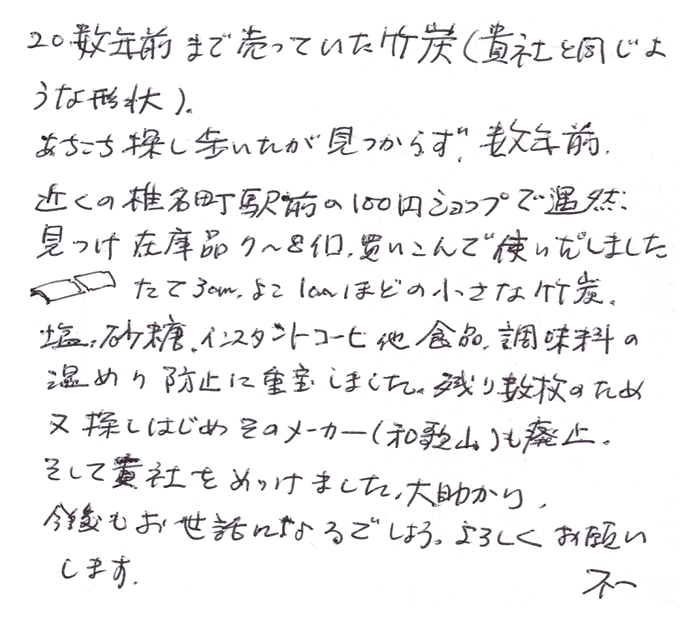 20数年前まで売っていた竹炭(貴社と同じよ
うな形状)。
あちこち探し歩いたが見つからず、数年前、
近くの椎名町駅前の100円ショップで遇然、
見つけ在庫品7〜8個、買いこんで使いだしました
たて3cm、よこ1cmほどの小さな竹炭。
塩、砂糖、インスタントコーヒ他食品、調味料の
湿めり防止に重宝しました。残り数枚のため
又探しはじめそのメーカー(和歌山)も廃止。
そして貴社をめっけました、大助かり、
今後もお世話になるでしょう。よろしくお願い
します。